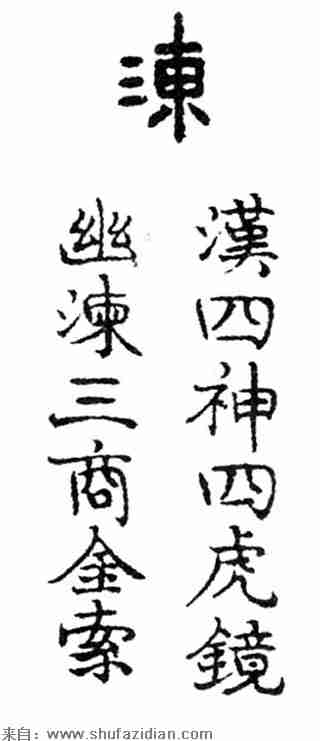 涷
漢四神四虎鏡
幽湅三商金索
来自：www.shufazidian.com